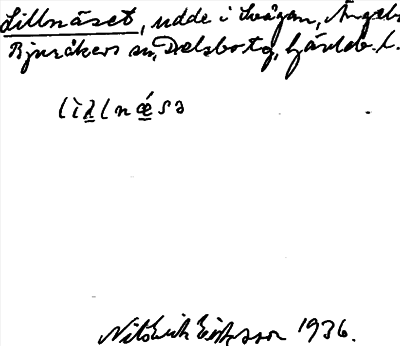 Lillnäset, udde i Svågan, Ängeb
Bjuråkers sn, Delsbo tg, Gävleb. l.
lìλlnǽsə
Nils Erik Eriksson 1936.